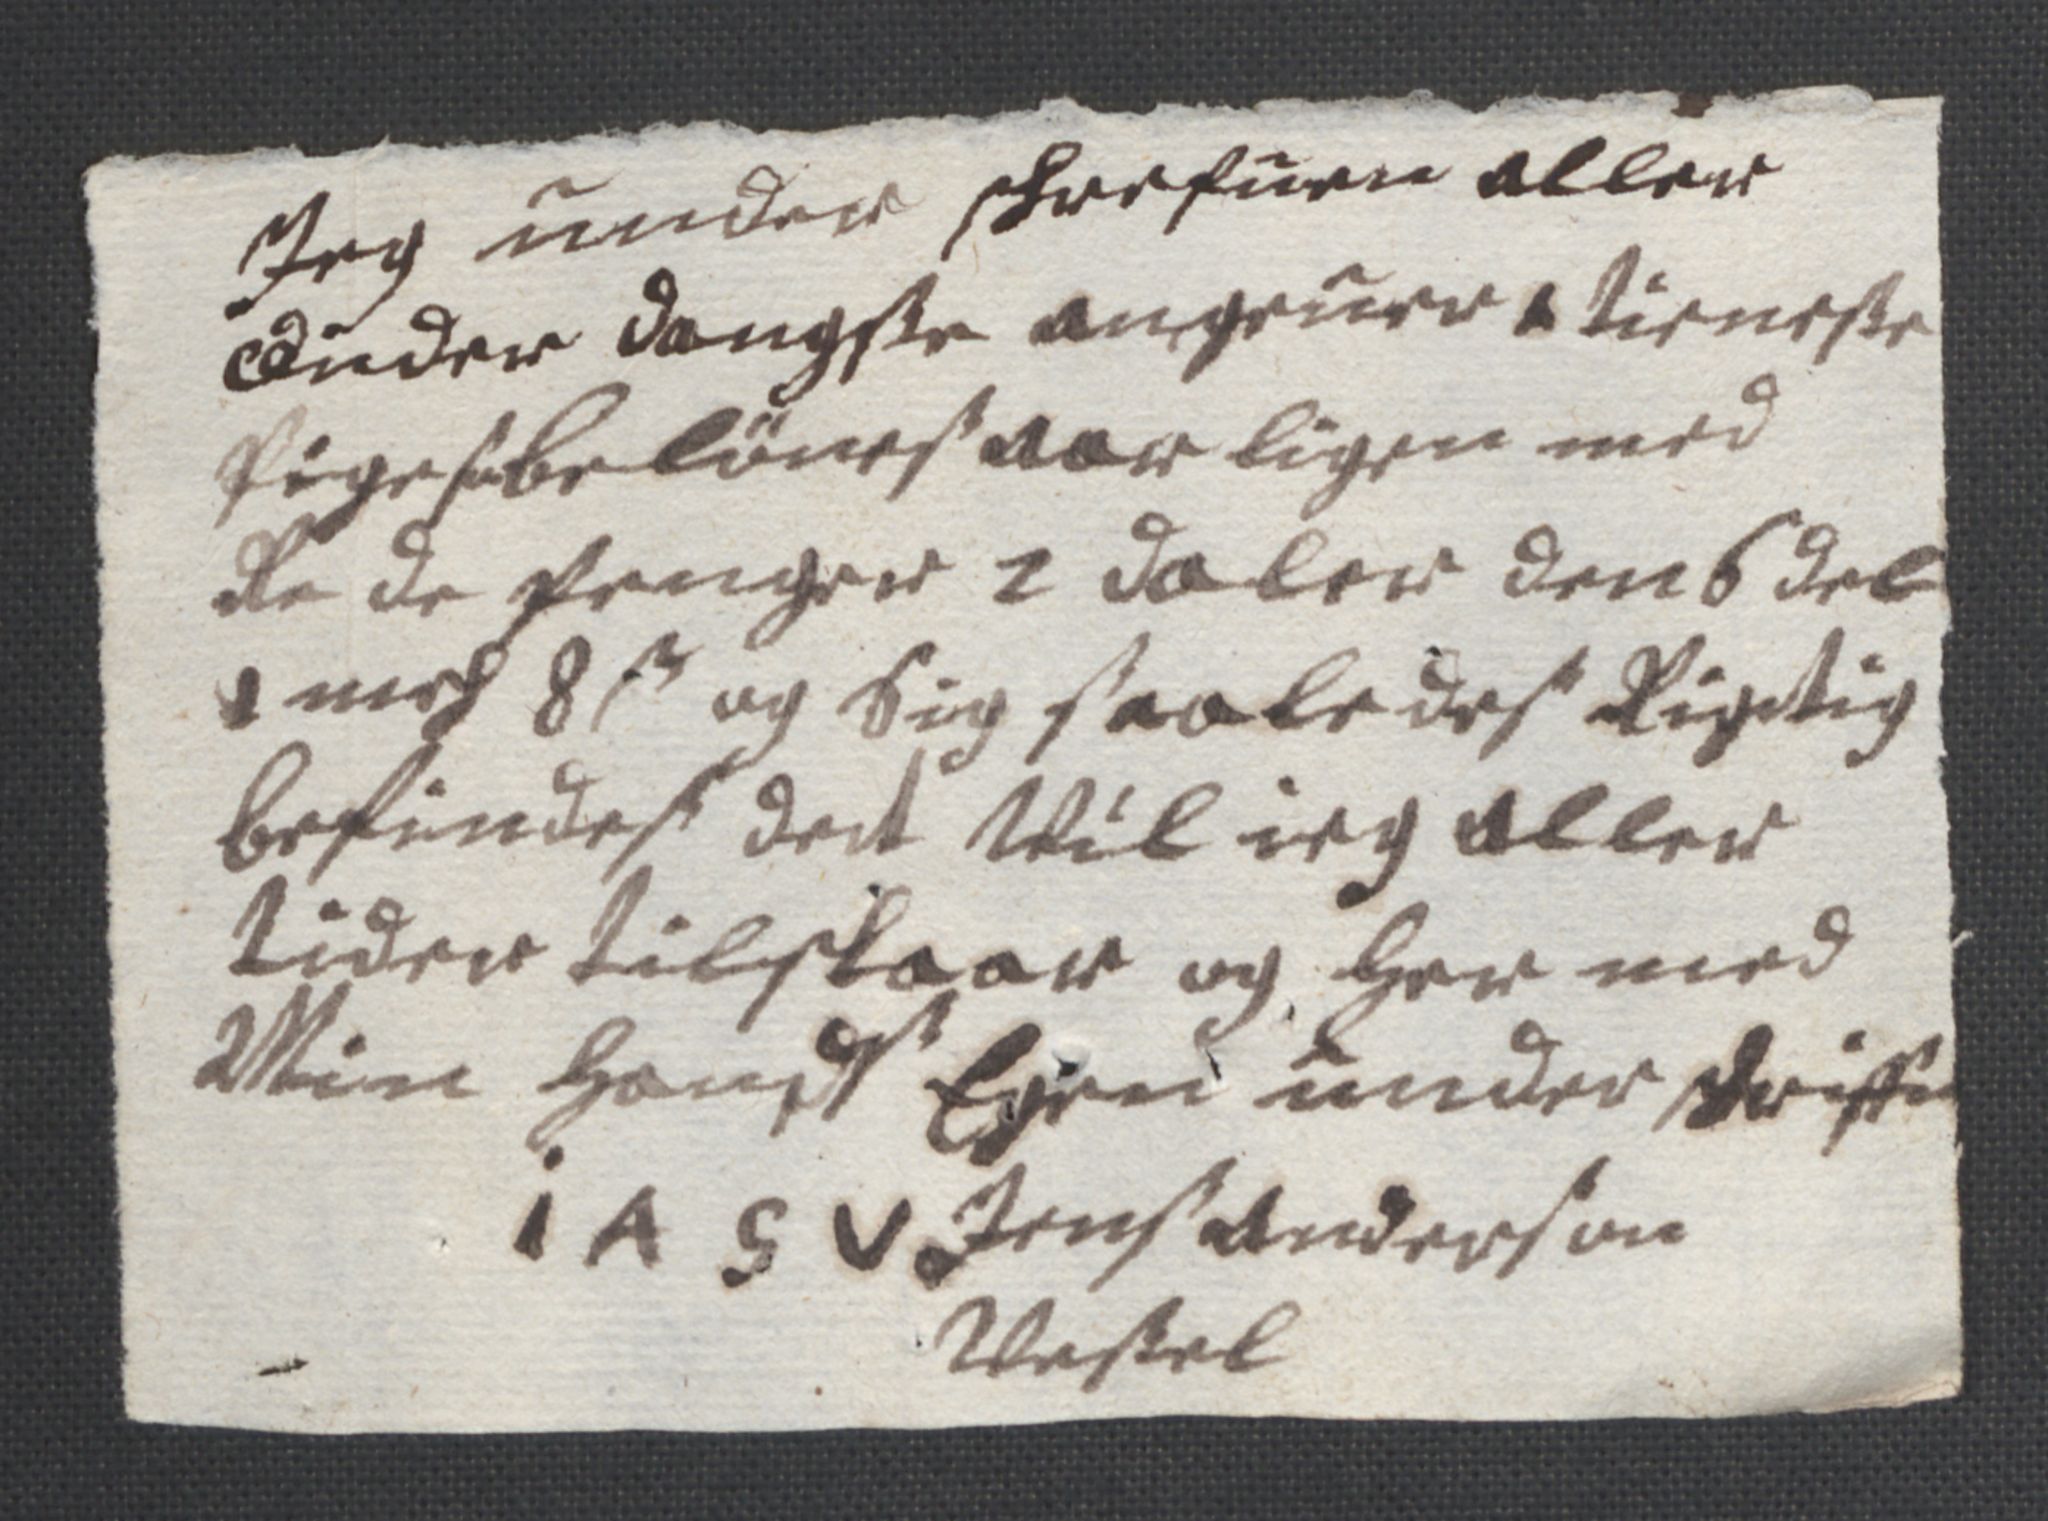 Jeg under skrefuen aller
Under dongste angeuer 1 tieneste
Pige som belönes aar ligen med
Re de Penger 2 daler den 6 del
1 mrk 8 ß og Sig saaledes Rigtig
befindes dett Vil ieg aller
tider tilstaar og her med
Min Hands Egen under skrifft
i A S V Jens anderson
Weßel